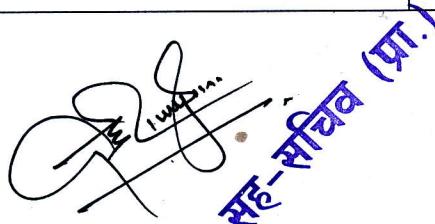 सह-सचिव (प्रा.)